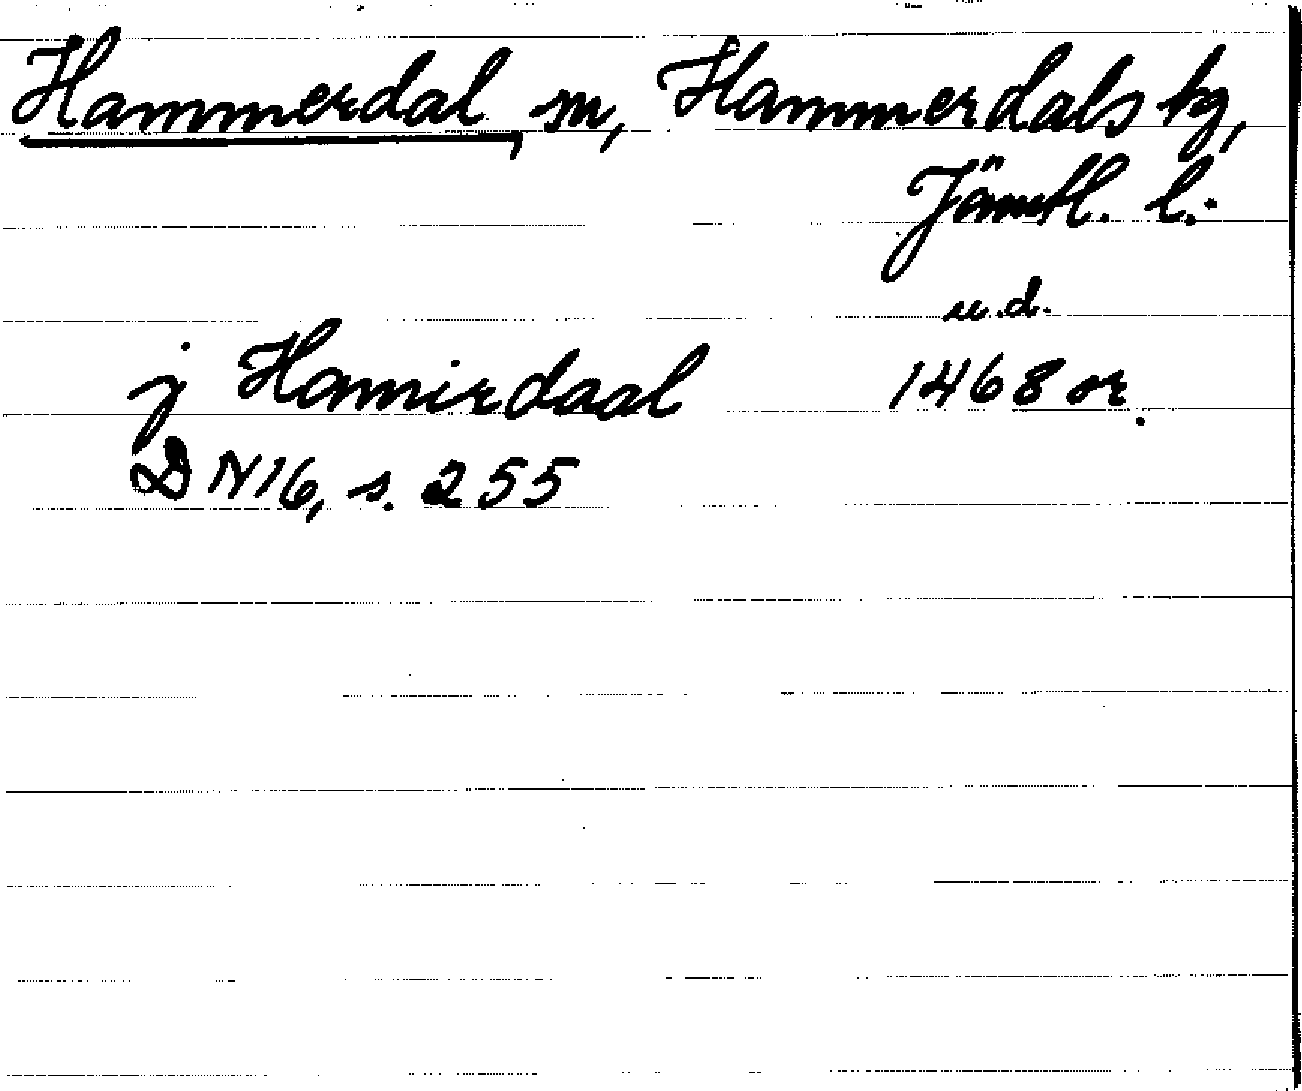 Hammerdal, sn, Hammerdals tg,
Jämtl. l.
u.d.
j Hamirdaal 1468 or.
DN16, s. 255